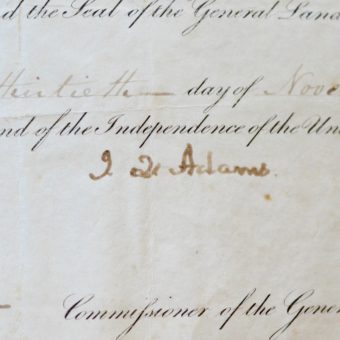 d the Seal of the General Land
thirtieth day of Nove
nd of the Independence of the Un
J. Q. Adams.
Commissioner of the Gener